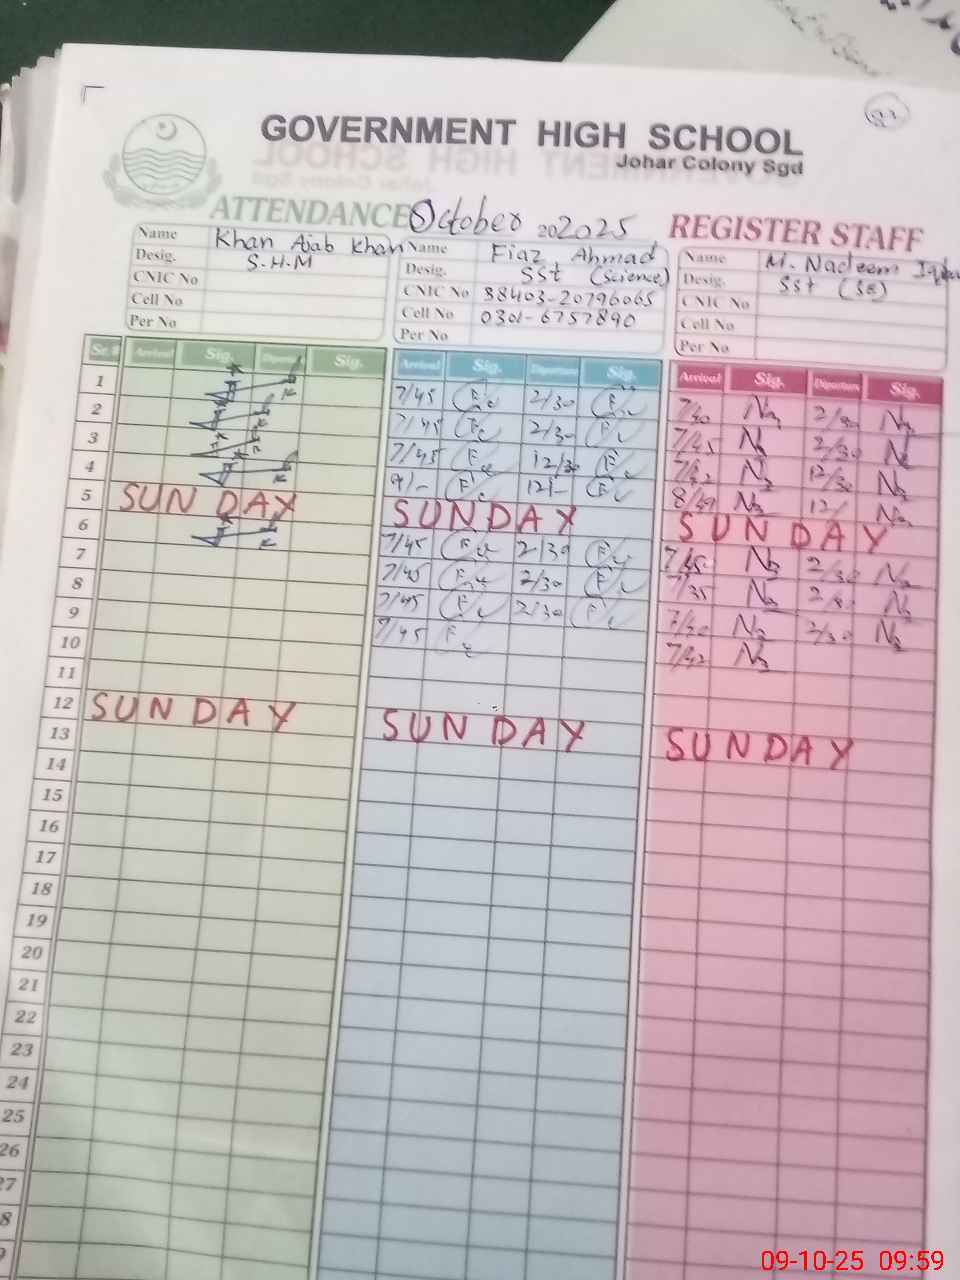 GOVERNMENT HIGH SCHOOL
Johar Colony Sgd
ATTENDANCE October 202025 REGISTER STAFF
Name Khan Ajab Khan
Desig. S.H.M
CNIC No
Cell No
Per No
Name Fiaz Ahmad
Desig. SSt (Science)
CNIC No 38403-20796065
Cell No 0301-6757890
Per No
Name M. Nadeem
Desig. SSt (SE)
CNIC No
Cell No
Per No
Sr.# Arrival Sig. Departure Sig. Arrival Sig. Departure Sig. Arrival Sig. Departure Sig.
1 7/45 2/30 7/40 2/30
2 7/45 2/30 7/45 2/30
3 7/45 12/30 7/42 12/30
4 9/- 12/- 8/49 12/
5 SUNDAY SUNDAY SUNDAY
6 7/45 2/30 2/30
7 7/45 2/30 7/35
8 7/45 2/30 2/30
9 7/45 7/42
10
11
12 SUNDAY SUNDAY SUNDAY
13
14
15
16
17
18
19
20
21
22
23
24
25
26
27
09-10-25 09:59